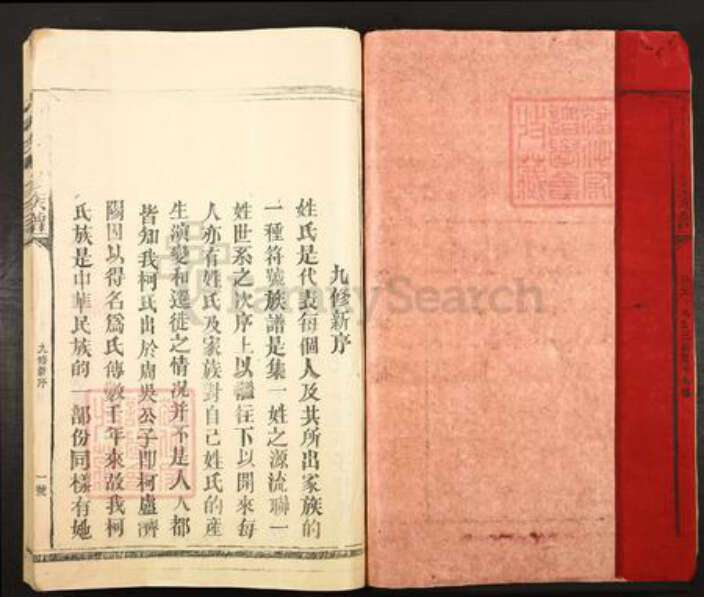 九修新序
姓氏是代表每個人及其所出家族的
一種符號族譜是集一姓之源流聯一
姓世系之次序上以繼往下以開來每
人亦有姓氏及家族對自己姓氏的產
生演變和遷徙之情況并不是人人都
皆知我柯氏出於周吳公子即柯盧濟
陽因以得名爲氏傳數千年來故我柯
氏族是中華民族的一部份同樣有她
族譜
九修新序
一號
FamilySearch